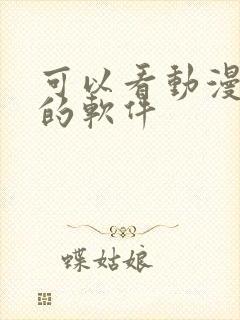 可以看動漫
的軟件
蝶姑娘